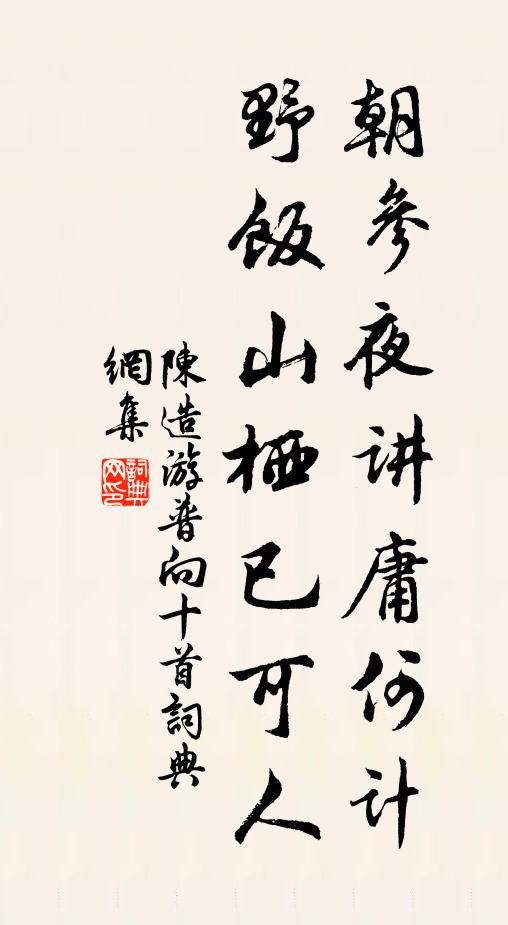 朝參夜讲庸何计
野飯山栖已可人
陳造游普向十首詞典
網集
詞典网印